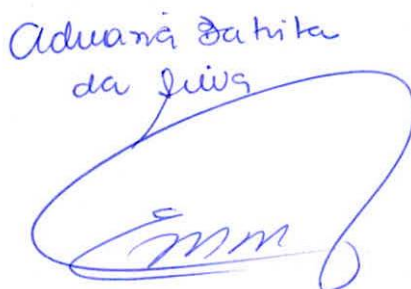 Adriana Batista
da Silva